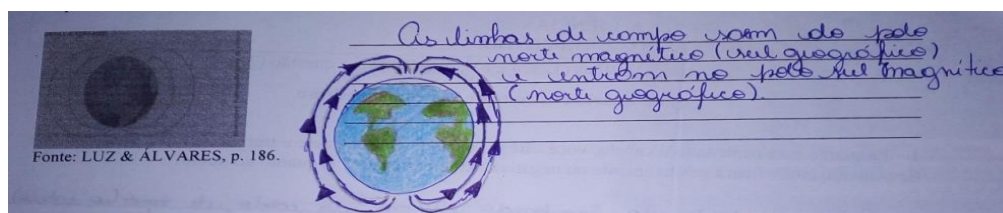 As linhas de campo saem do polo
norte magnético (sul geográfico)
e entram no polo sul magnético
(norte geográfico).
Fonte: LUZ & ÁLVARES, p. 186.